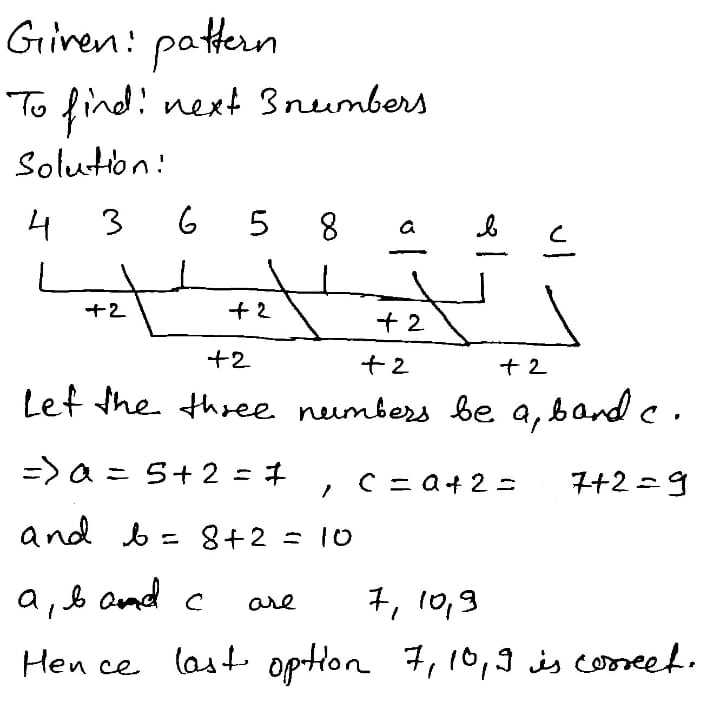 Given: pattern
To find: next 3 numbers
Solution:
4 3 6 5 8 a b c
+2 +2 +2
+2 +2 +2
Let the three numbers be a, b and c.
=> a = 5+2 = 7 , c = a+2 = 7+2 = 9
and b = 8+2 = 10
a, b and c are 7, 10, 9
Hence last option 7, 10, 9 is correct.